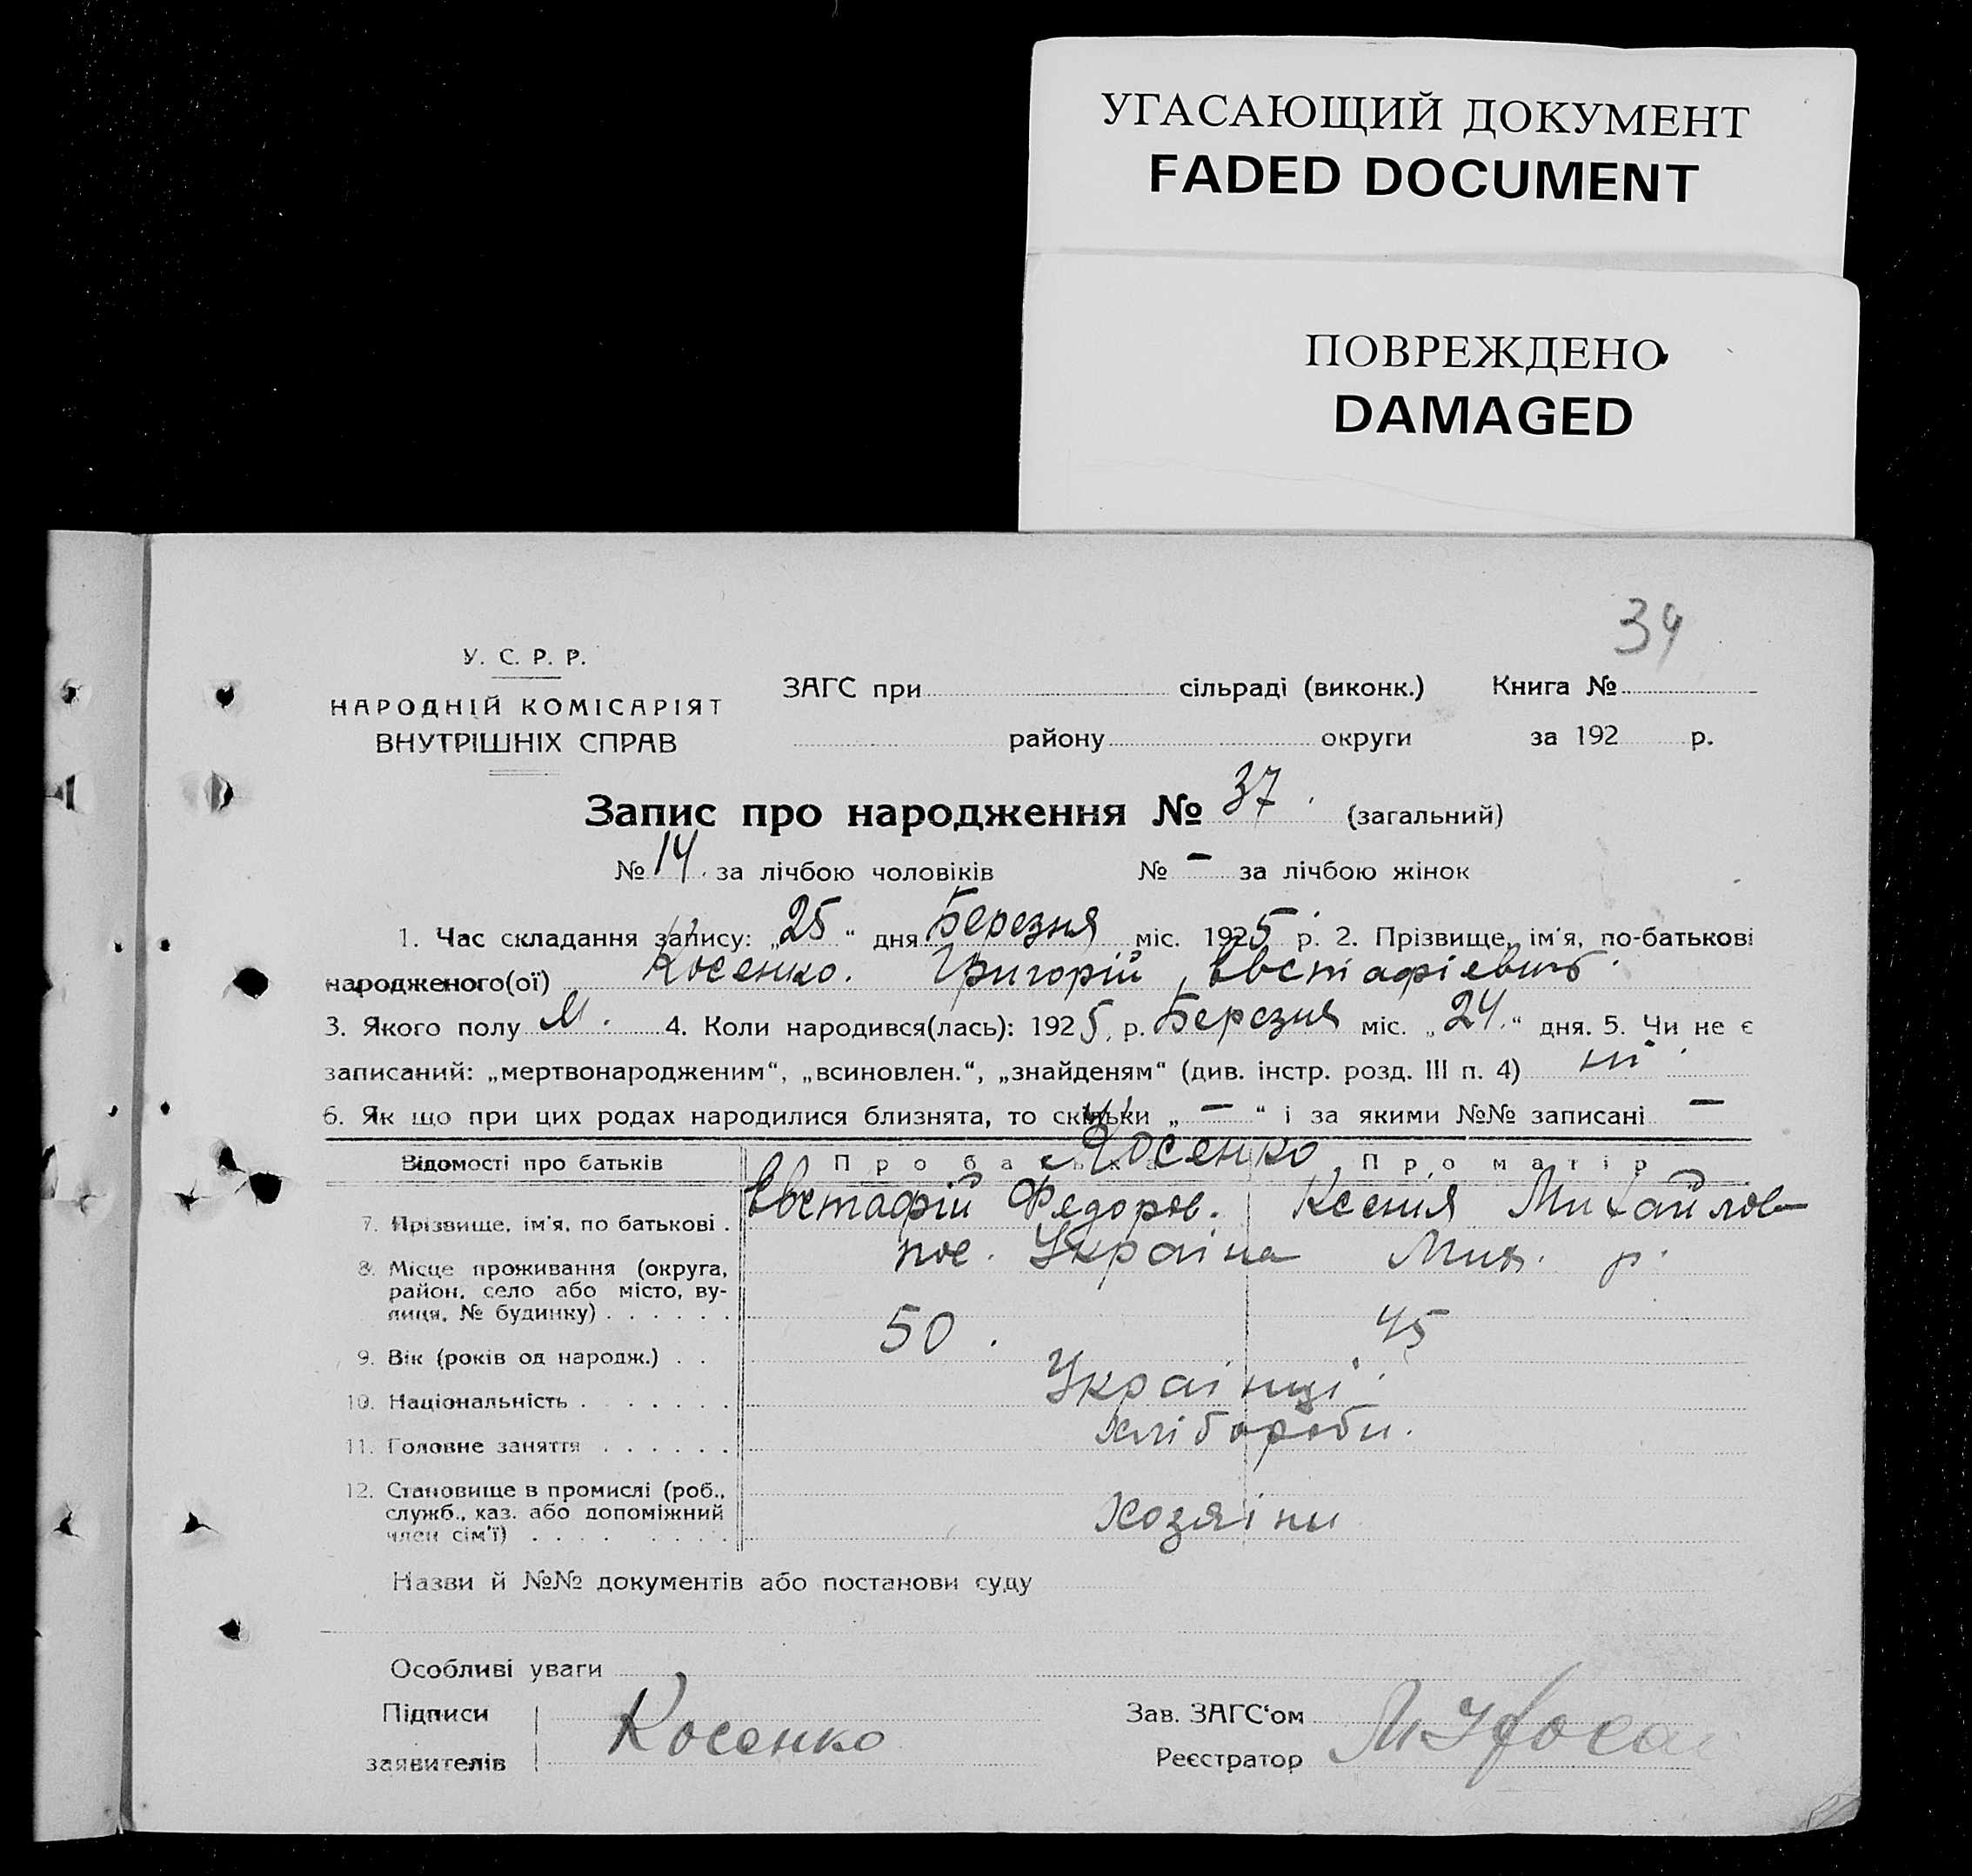 УГАСАЮЩИЙ ДОКУМЕНТ
FADED DOCUMENT
ПОВРЕЖДЕНО
DAMAGED
34
У. С. Р. Р.
НАРОДНІЙ КОМІСАРІЯТ
ВНУТРІШНІХ СПРАВ
ЗАГС при сільраді (виконк.) Книга №
району округи за 192 р.
Запис про народження № 37. (загальний)
№ 14. за лічбою чоловіків № – за лічбою жінок
1. Час складання запису: „25“ дня Березня міс. 1925 р. 2. Прізвище, ім'я, по-батькові
народженого(ої) Косенко. Григорій Євстафієвич.
3. Якого полу М. 4. Коли народився(лась): 1925. р. Березня міс. „24.“ дня. 5. Чи не є
записаний: „мертвонародженим“, „всиновлен.“, „знайденям“ (див. інстр. розд. III п. 4) ні.
6. Як що при цих родах народилися близнята, то скільки „–“ і за якими №№ записані –
Відомості про батьків Про батька Про матір
Косенко
7. Прізвище, ім'я, по батькові . Євстафій Федоров. Ксения Михайлов
8. Місце проживання (округа, пос. Україна р.
район, село або місто, ву-
лиця, № будинку) . . . . . .
9. Вік (років од народж.) . . 50. 45
10. Національність . . . . . . . Українці.
11. Головне заняття . . . . . . хлібороби.
12. Становище в промислі (роб.,
служб., хаз. або допоміжний Хозяіни
член сім'ї) . . . . . . . .
Назви й №№ документів або постанови суду
Особливі уваги
Підписи Зав. ЗАГС'ом
Косенко
заявителів Реєстратор